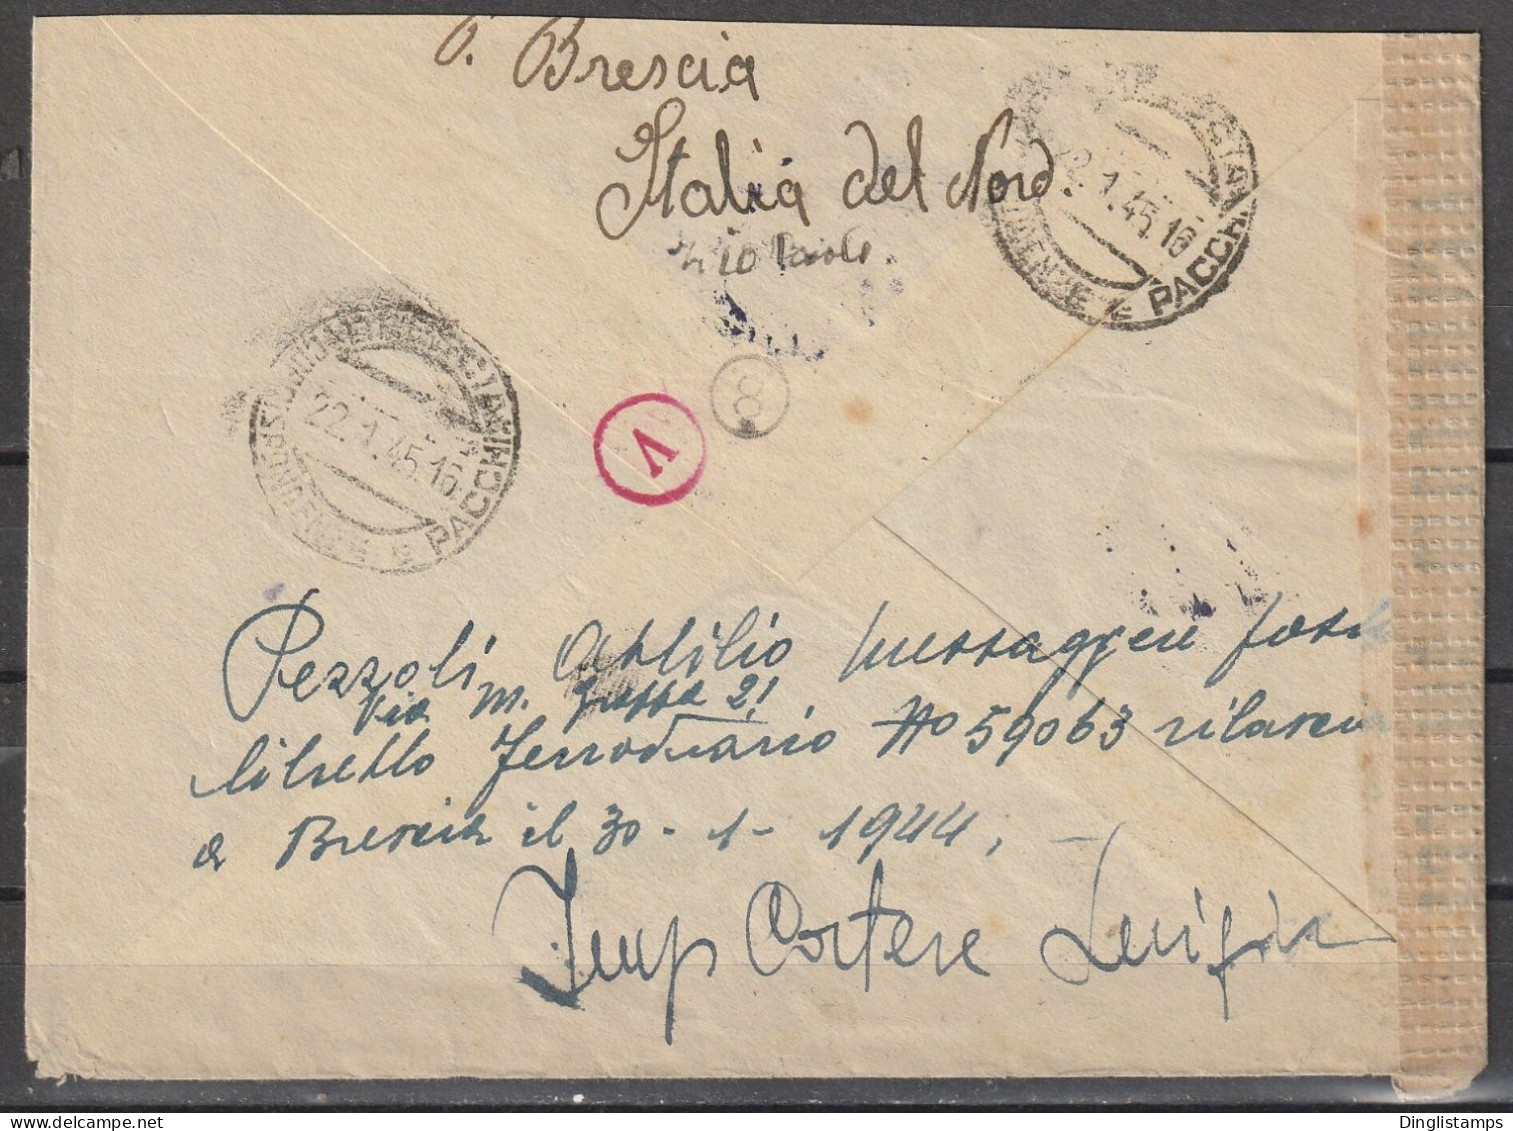 P. Brescia
Italia del Nord.
22.1.45.16
PACCHI
22.1.45.16
PACCHI
8
V
Pezzoli Attilio messaggere
Via M. Grappa 21
libretto ferroviario No 59063
a Brescia il 30-1-1944,
Imp Cortese Luigia
Dinglistamps